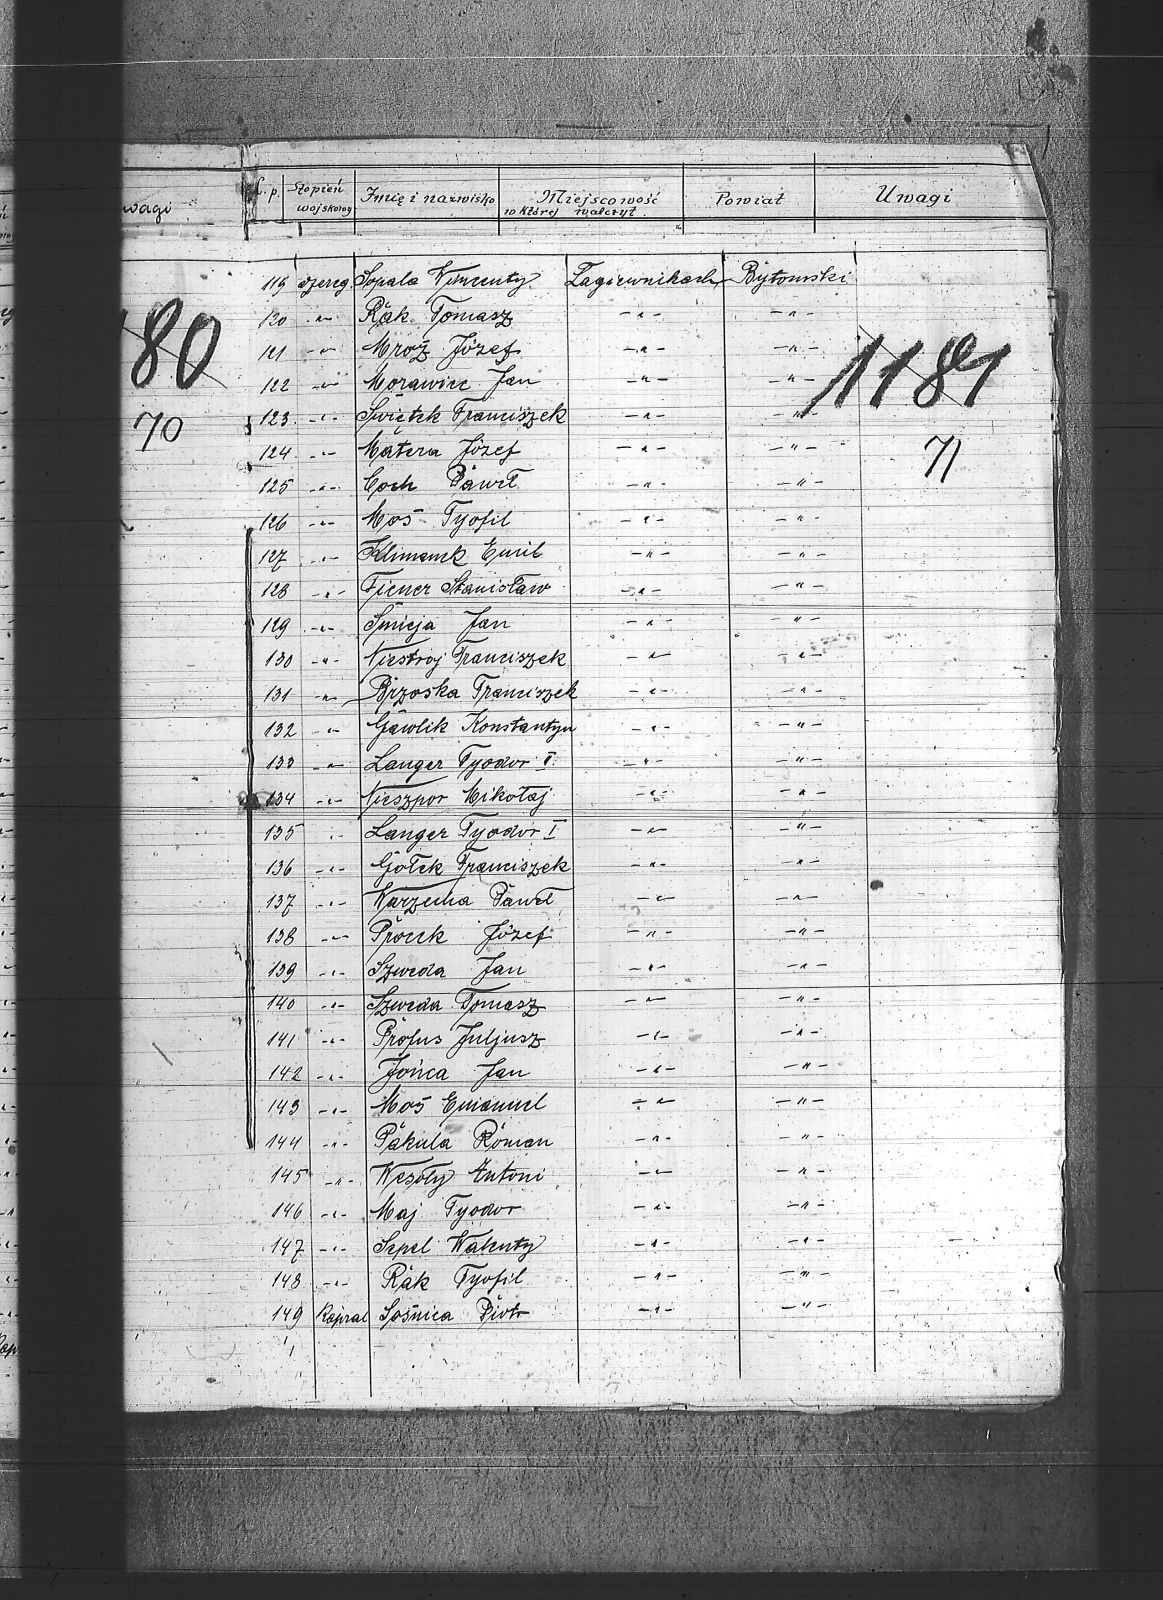 L. p. Stopień wojskowy Imię i nazwisko Miejscowość w której walczył Powiat Uwagi
wagi
119 szereg. Sopala Wincenty Łagiewnikach Bytomski
120 -"- Rak Tomasz -"- -"-
121 -"- Mroż Józef -"- -"-
122 -"- Morawiec Jan -"- -"-
123 -"- Świętek Franciszek -"- -"-
124 -"- Matera Józef -"- -"-
125 -"- Coch Paweł -"- -"-
126 -"- Moś Tyofil -"- -"-
127 -"- Klimanek Emil -"- -"-
128 -"- Ficner Stanisław -"- -"-
129 -"- Śmieja Jan -"- -"-
130 -"- Niestroj Franciszek -"- -"-
131 -"- Brzoska Franciszek -"- -"-
132 -"- Gawlik Konstantyn -"- -"-
133 -"- Langer Tyodor II -"- -"-
134 -"- Nieszpor Mikołaj -"- -"-
135 -"- Langer Tyodor I -"- -"-
136 -"- Gołek Franciszek -"- -"-
137 -"- Warzecha Paweł -"- -"-
138 -"- Procek Józef -"- -"-
139 -"- Szweda Jan -"- -"-
140 -"- Szweda Tomasz -"- -"-
141 -"- Profus Juljusz -"- -"-
142 -"- Jońca Jan -"- -"-
143 -"- Moś Emanuel -"- -"-
144 -"- Pakula Roman -"- -"-
145 -"- Wesoły Antoni -"- -"-
146 -"- Maj Tyodor -"- -"-
147 -"- Sepel Walenty -"- -"-
148 -"- Rak Tyofil -"- -"-
149 Kapral Sośnica Piotr -"- -"-
80
70
1181
71